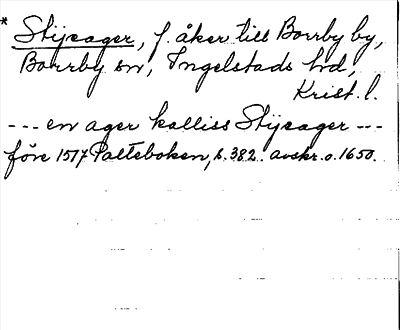 * Stijsager, f. åker till Borrby by,
Borrby sn, Ingelstads hd,
Krist. l.
--- en ager kalliss Stijsager ---
före 1517 Palteboken, s. 382. avskr. o. 1650.